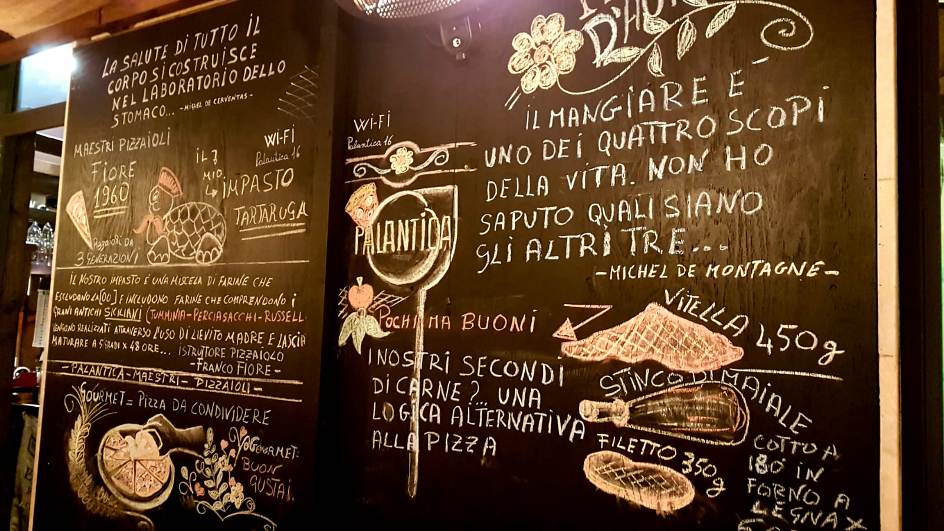 LA SALUTE DI TUTTO IL
CORPO SI COSTRUISCE
NEL LABORATORIO DELLO
STOMACO... -MIGHEL DE CERVENTAS-
MAESTRI PIZZAIOLI
FIORE
1960
Pizzaioli DA
3 GENERAZIONI
WI-FI
Palantica 16
IL
MIO
IMPASTO
TARTARUGA
IL NOSTRO IMPASTO E UNA MISCELA DI FARINE CHE
ESCLUDONO LA [00] E INCLUDONO FARINE CHE COMPRENDONO I
GRANI ANTICHI SICILIANI (TUMMINIA-PERCIASACCHI-RUSSELL
VENGONO REALIZZATI ATTRAVERSO L'USO DI LIEVITO MADRE E LASCIA
MATURARE A 5 GRADI X 48 ORE... ISTRUTORE PIZZAIOLO
-FRANCO FIORE-
-PALANTICA-MAESTRI-PIZZAIOLI-
GOURMET= PIZZA DA CONDIVIDERE
GOURMET:
BUON
GUSTAI.
WI-FI
Palantica 16
PALANTICA
D'AUTORE
IL MANGIARE E'
UNO DEI QUATTRO SCOPI
DELLA VITA. NON HO
SAPUTO QUALI SIANO
GLI ALTRI TRE...
-MICHEL DE MONTAGNE-
POCHI MA BUONI
I NOSTRI SECONDI
DI CARNE?... UNA
LOGICA ALTERNATIVA
ALLA PIZZA
VITELLA 450g
STINCO DI MAIALE
COTTO A
180 IN
FORNO A
LEGNA X
FILETTO 350g